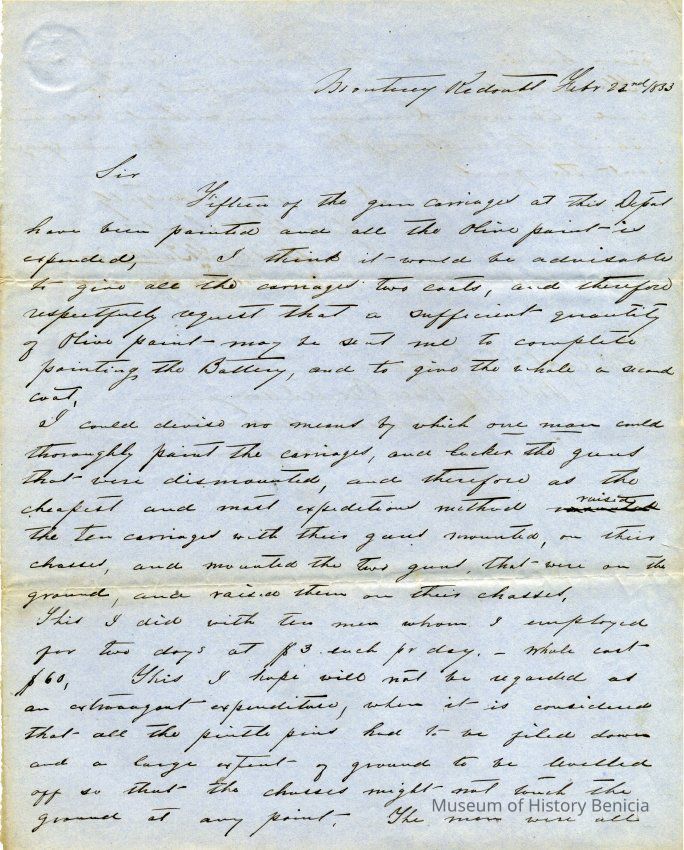 Monterey Redoubt Febr 22nd/1853
Sir
Fifteen of the gun carriages at this Depot
have been painted and all the Olive paint is
expended, I think it would be advisable
to give all the carriages two coats, and therefore
respectfully request that a sufficient quantity
of Olive paint may be sent me to complete
painting the Battery, and to give the whole a second
coat,
I could devise no means by which one man could
thoroughly paint the carriages, and lacker the guns
that were dismounted, and therefore as the
cheapest and most expeditious method mounted raised
the ten carriages with their guns mounted, on their
chasses, and mounted the two guns, that were on the
ground, and raised them on their chasses,
This I did with ten men whom I employed
for two days at $3 each pr day. – whole cost
$60, This I hope will not be regarded as
an extravagant expenditure, when it is considered
that all the pintle pins had to be filed down
and a large extent of ground to be levelled
off so that the chasses might not touch the
ground at any point. The men were all
Museum of History Benicia